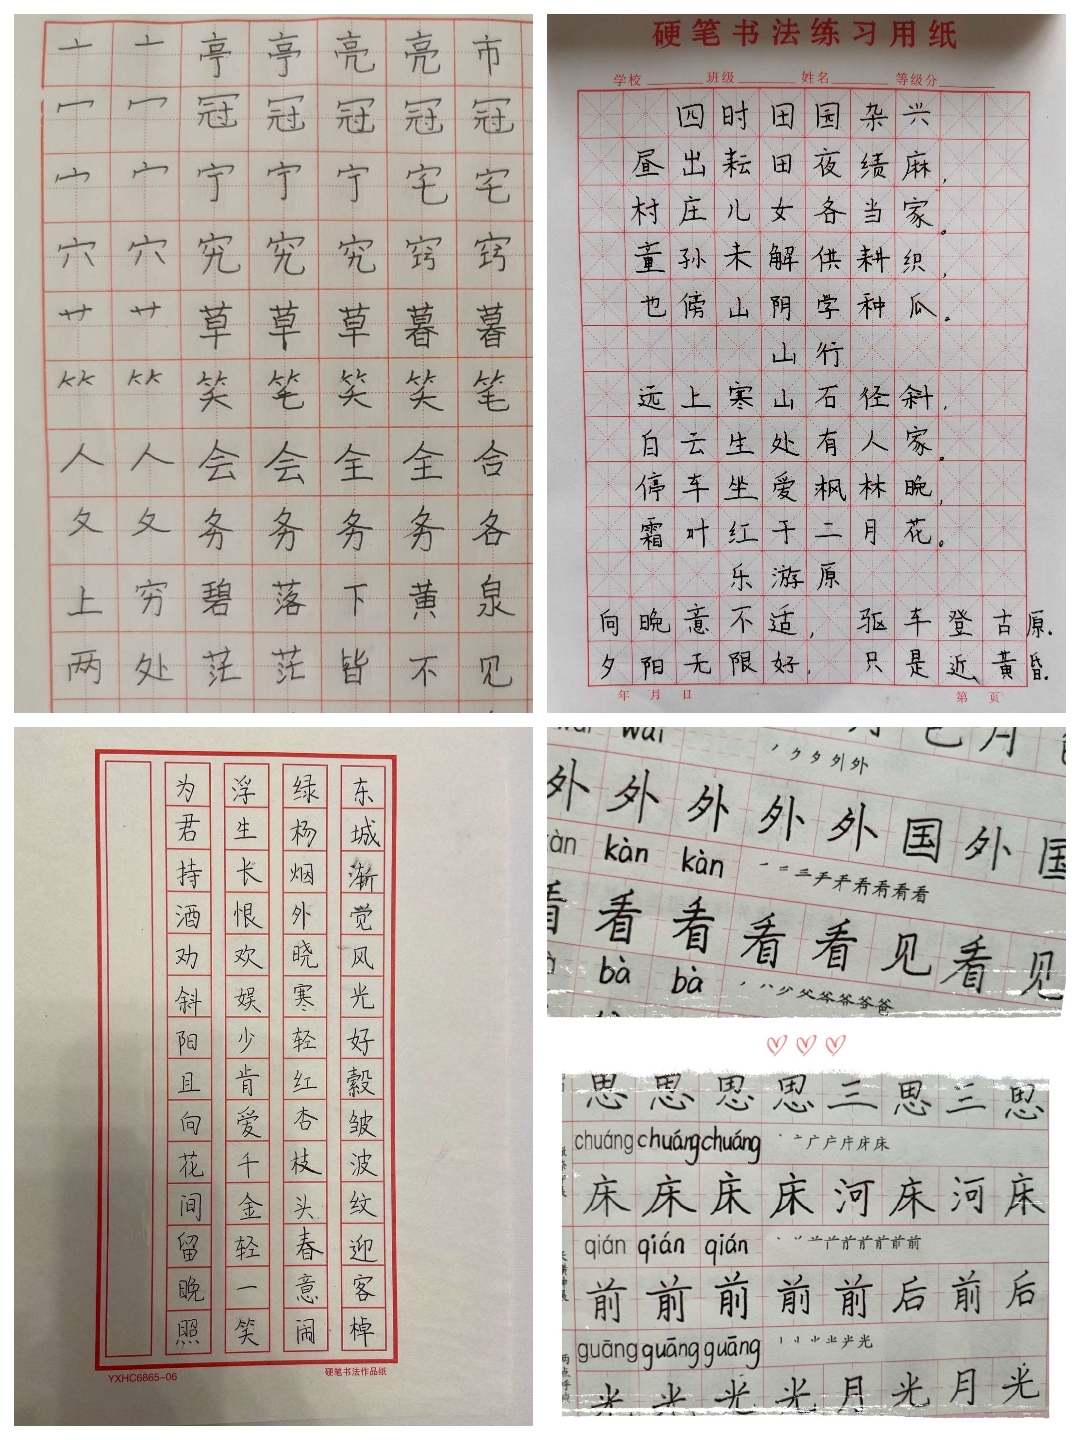 亠 亠 亭 亭 亮 亮 市
冖 冖 冠 冠 冠 冠 冠
宀 宀 宁 宁 宁 宅 宅
穴 穴 究 究 究 窍 窍
艹 艹 草 草 草 暮 暮
⺮ ⺮ 笑 笔 笑 笑 笔
人 人 会 会 全 全 合
夂 夂 务 务 务 务 各
上 穷 碧 落 下 黄 泉
两 处 茫 茫 皆 不 见
硬笔书法练习用纸
学校 班级 姓名 等级分
四时田园杂兴
昼出耘田夜绩麻,
村庄儿女各当家。
童孙未解供耕织,
也傍山阴学种瓜。
山行
远上寒山石径斜,
白云生处有人家。
停车坐爱枫林晚,
霜叶红于二月花。
乐游原
向晚意不适, 驱车登古原.
夕阳无限好, 只是近黄昏.
年 月 日 第 页
东城渐觉风光好縠皱波纹迎客棹
绿杨烟外晓寒轻红杏枝头春意闹
浮生长恨欢娱少肯爱千金轻一笑
为君持酒劝斜阳且向花间留晚照
YXHC6865-06 硬笔书法作品纸
wài
外 外 外 外 外 国 外 国
kàn kàn
看 看 看 看 看 见 看 见
bà bà
思 思 思 思 三 思 三 思
chuáng chuáng chuáng
床 床 床 床 河 床 河 床
qián qián qián
前 前 前 前 前 后 前 后
guāng guāng guāng
光 光 光 光 月 光 月 光